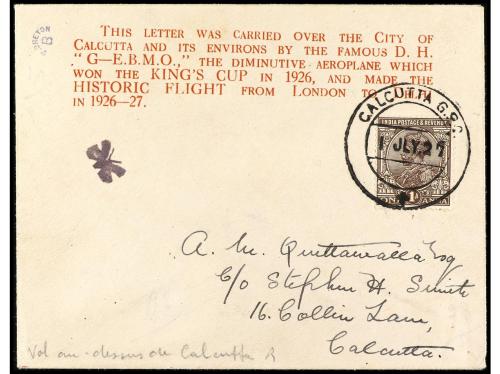 BRETON
THIS LETTER WAS CARRIED OVER THE CITY OF
CALCUTTA AND ITS ENVIRONS BY THE FAMOUS D. H.
"G—E.B.M.O.," THE DIMINUTIVE AEROPLANE WHICH
WON THE KING'S CUP IN 1926, AND MADE THE
HISTORIC FLIGHT FROM LONDON TO
IN 1926—27.
CALCUTTA G.P.O.
1 JLY.27
INDIA POSTAGE & REVENUE
1A
ONE ANNA
A. M. Quittawalla Esq
C/o Stephen H. Smith
16. Collin Lane,
Calcutta.
Vol au-dessus de Calcutta R